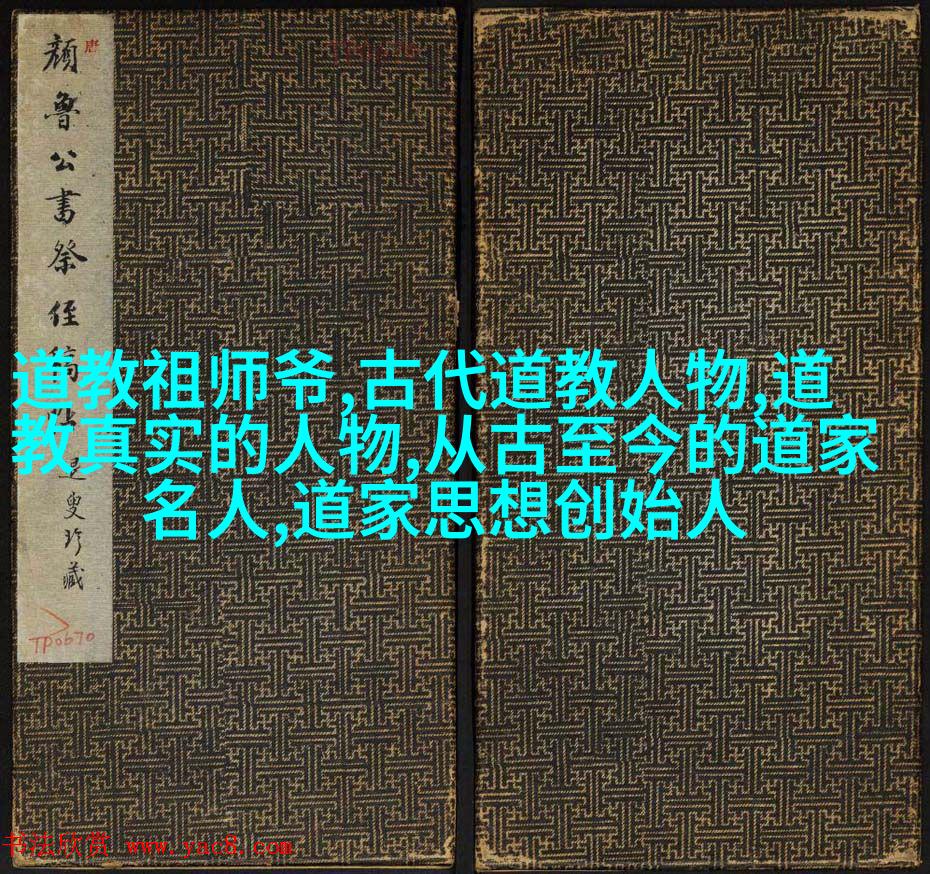 唐
颜鲁公书祭侄稿
是叟珍藏
TP0670
道教祖师爷,古代道教人物,道
教真实的人物,从古至今的道家
名人,道家思想创始人
书法欣赏 www.yac8.com